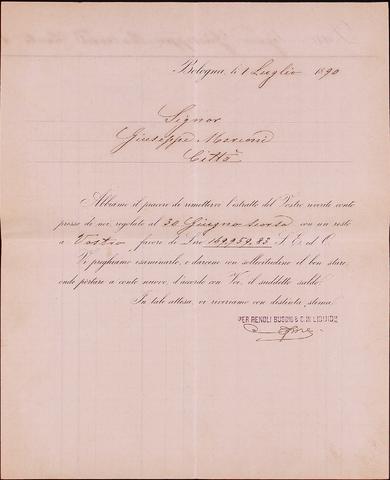 Bologna, li 1 Luglio 1890
Signor
Giuseppe Marconi
Città
Abbiamo il piacere di rimettervi l'estratto del Vostro riverito conto
presso di noi regolato al 30 Giugno scorso con un resto
a Vostro favore di Lire 149959.83 S. E. ed O.
Vi preghiamo esaminarlo, e darcene con sollecitudine il ben stare,
onde portare a conto nuovo, d'accordo con Voi, il suddetto saldo.
In tale attesa, vi riveriamo con distinta stima.
PER RENOLI BUGGIO & C. IN LIQUIDE